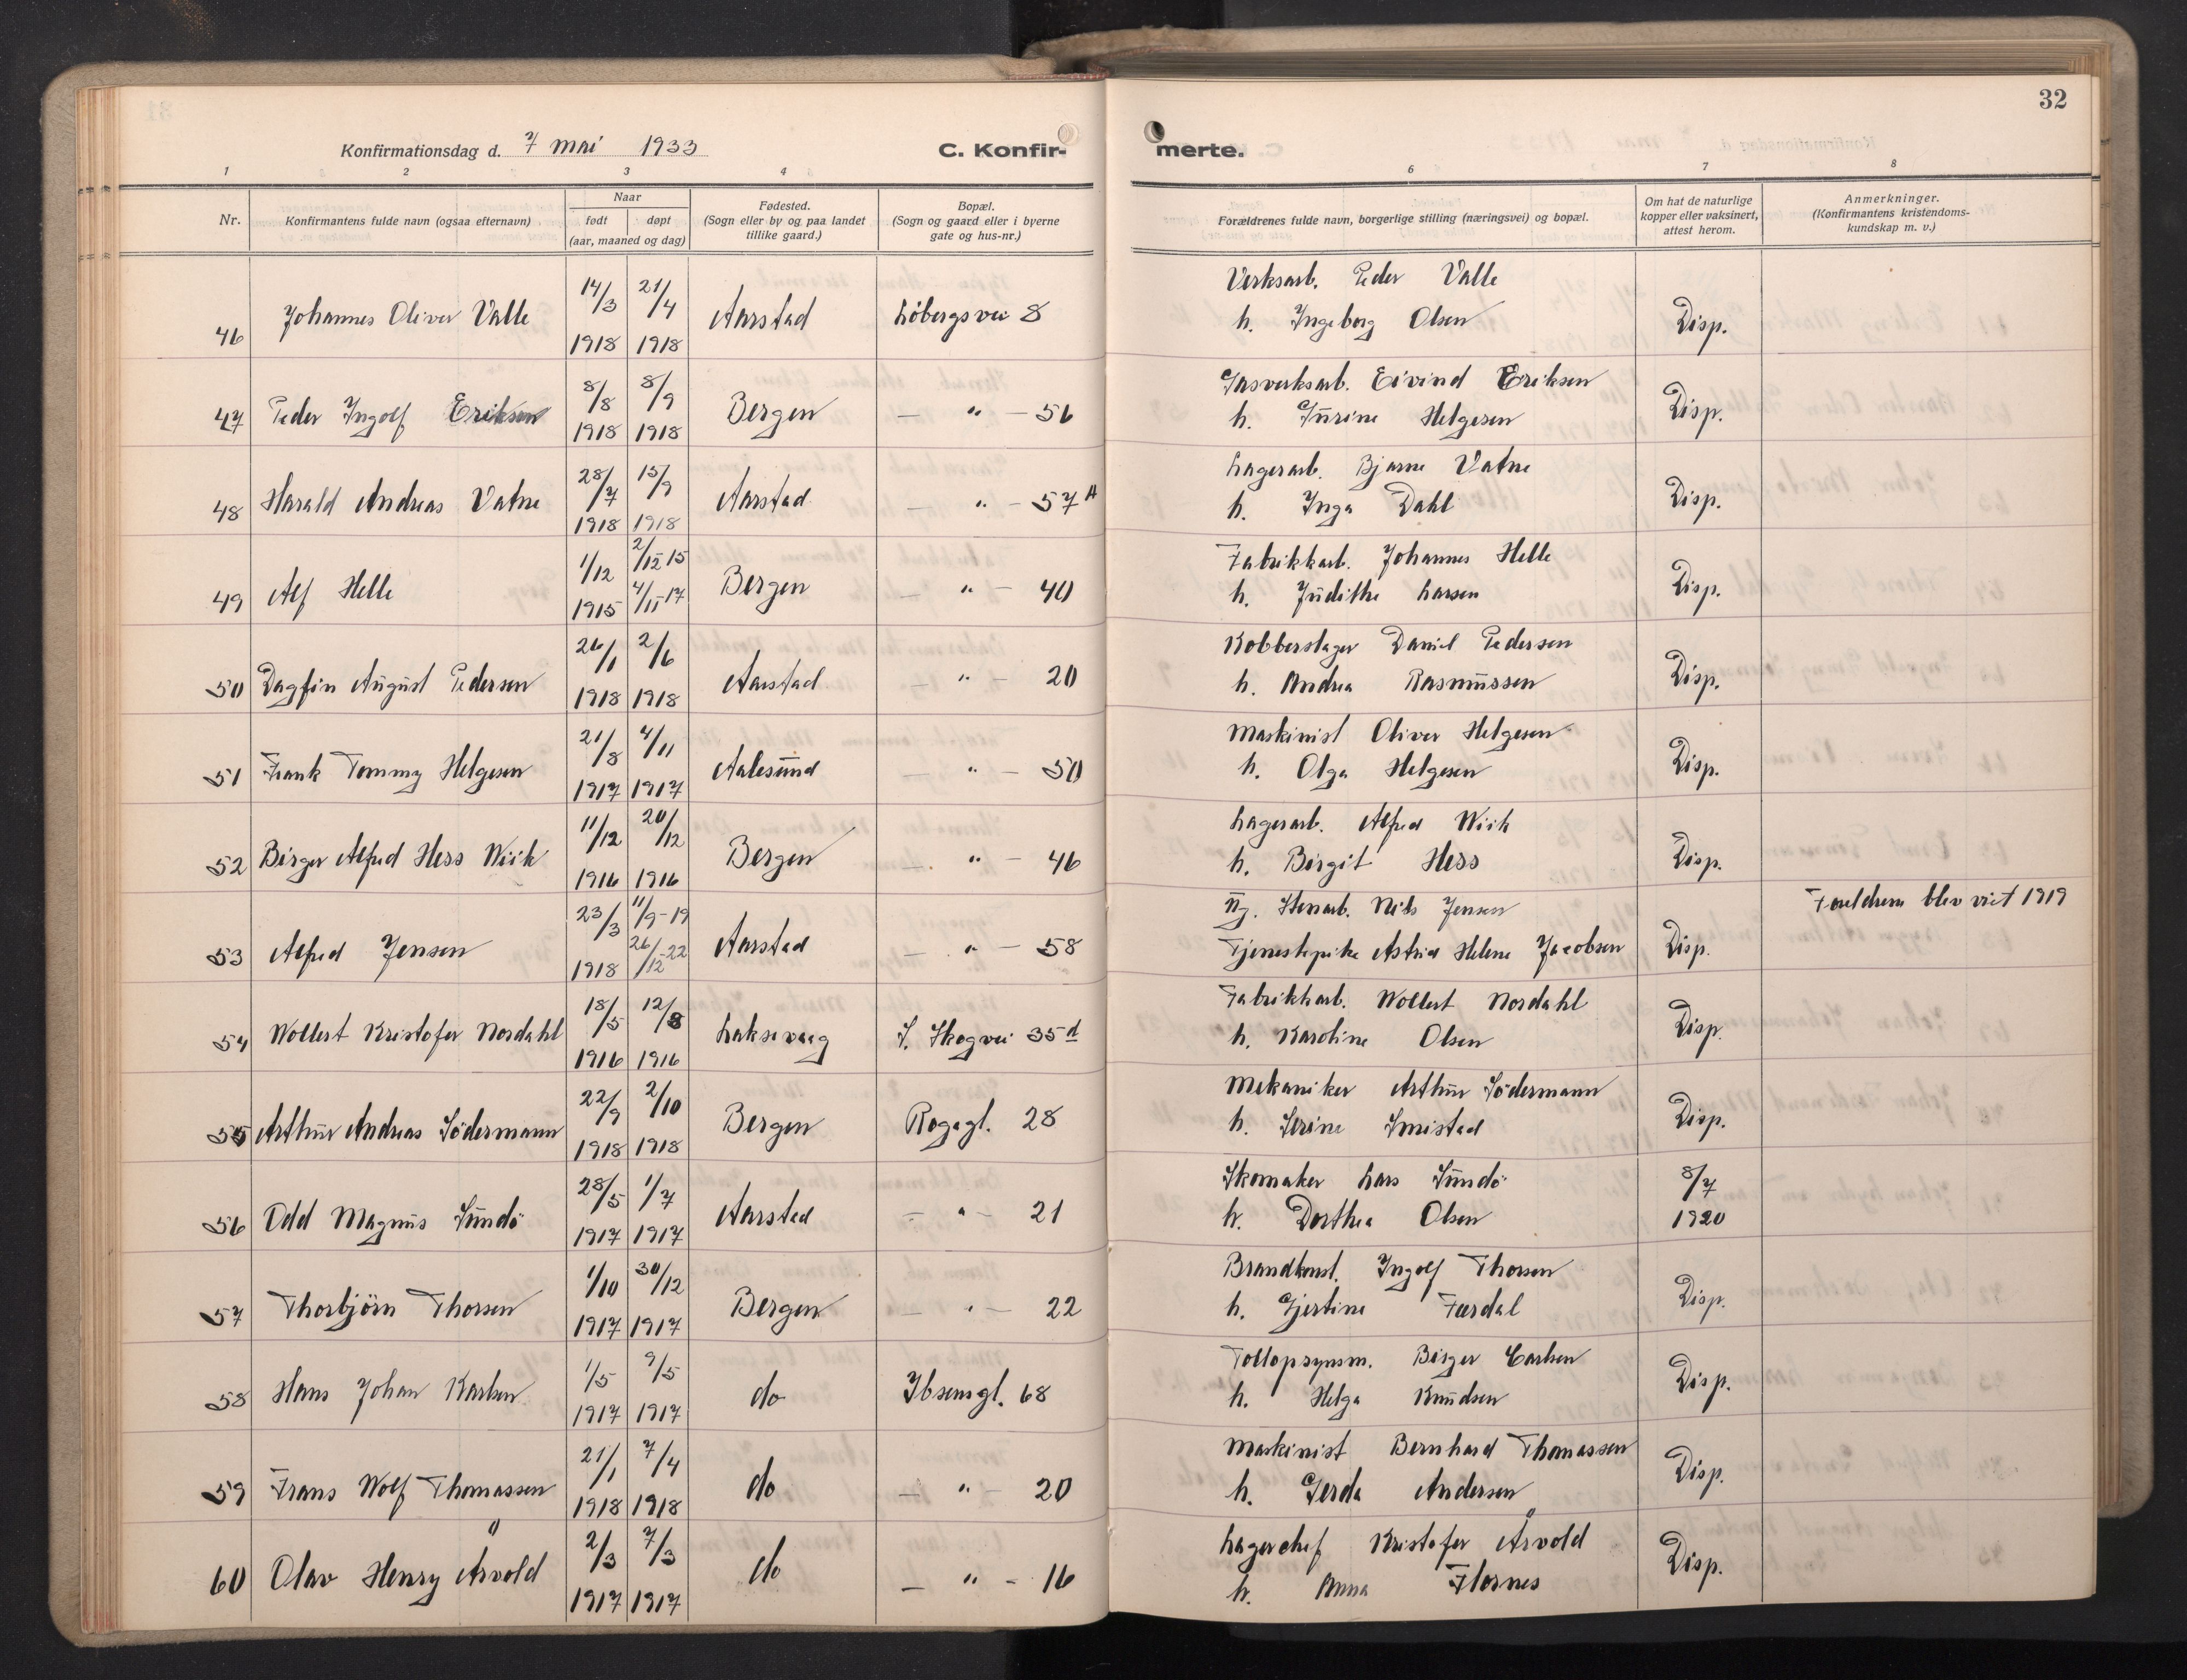 32
Konfirmationsdag d. 7 mai 1933 C. Konfir- merte.
1 2 3 4 5 6 7 8
Nr. Konfirmantens fulde navn (ogsaa efternavn) Naar født døpt (aar, maaned og dag) Fødested. (Sogn eller by og paa landet tillike gaard.) Bopæl. (Sogn og gaard eller i byerne gate og hus-nr.) Forældrenes fulde navn, borgerlige stilling (næringsvei) og bopæl. Om hat de naturlige kopper eller vaksinert, attest herom. Anmerkninger. (Konfirmantens kristendoms- kundskap m. v.)
14/3 21/4 Verksarb. Peder Valle
46 Johannes Oliver Valle 1918 1918 Aarstad Løbergsvei 8 h. Ingeborg Olsen Disp.
8/8 8/9 Gasverksarb. Eivind Eriksen
47 Peder Ingolf Eriksen 1918 1918 Bergen — " — 56 h. Gurine Helgesen Disp.
28/7 15/9 Lagerarb. Bjarne Vatne
48 Harald Andreas Vatne 1918 1918 Aarstad — " — 57A h. Inga Dahl Disp.
1/12 2/12 15 Fabrikkarb. Johannes Helle
49 Alf Helle 1915 4/11-17 Bergen — " — 40 h. Judithe Larsen Disp.
26/1 2/6 Kobberslager Daniel Pedersen
50 Dagfin August Pedersen 1918 1918 Aarstad — " — 20 h. Andrea Rasmussen Disp.
21/8 4/11 Maskinist Oliver Helgesen
51 Frank Tommy Helgesen 1917 1917 Aalesund — " — 50 h. Olga Helgesen Disp.
11/12 20/12 Lagerarb. Alfred Wiik
52 Birger Alfred Hess Wiik 1916 1916 Bergen — " — 46 h. Birgit Hess Disp.
23/3 11/9-19 Ug. Stenarb. Nils Jensen Foreldrene blev viet 1919
53 Alfred Jensen 1918 26/12-22 Aarstad — " — 58 Tjenestepike Astrid Helene Jacobsen Disp.
18/5 12/8 Fabrikkarb. Wollert Nordahl
54 Wollert Kristofer Nordahl 1916 1916 Laksevaag S. Skogvei 35d h. Karoline Olsen Disp.
22/9 2/10 Mekaniker Arthur Södermann
55 Arthur Andreas Södermann 1918 1918 Bergen Rogagt. 28 h. Serine Smistad Disp.
28/5 1/7 Skomaker Lars Sundö 8/7
56 Odd Magnus Sundö 1917 1917 Aarstad — " — 21 h. Dorthea Olsen 1920
1/10 30/12 Brandkonst. Ingolf Thorsen
57 Thorbjörn Thorsen 1917 1917 Bergen — " — 22 h. Gjertine Færdal Disp.
1/5 9/5 Tollopsynsm. Birger Carlsen
58 Hans Johan Karlsen 1917 1917 do Ibsensgt. 68 h. Helga Knudsen Disp.
21/1 7/4 Maskinist Bernhard Thomassen
59 Frans Wolf Thomassen 1918 1918 do — " — 20 h. Gerda Andersen Disp.
2/3 7/3 Lagerchef Kristofer Årvold
60 Olav Henry Årvold 1917 1917 do — " — 16 h. Anna Flornes Disp.